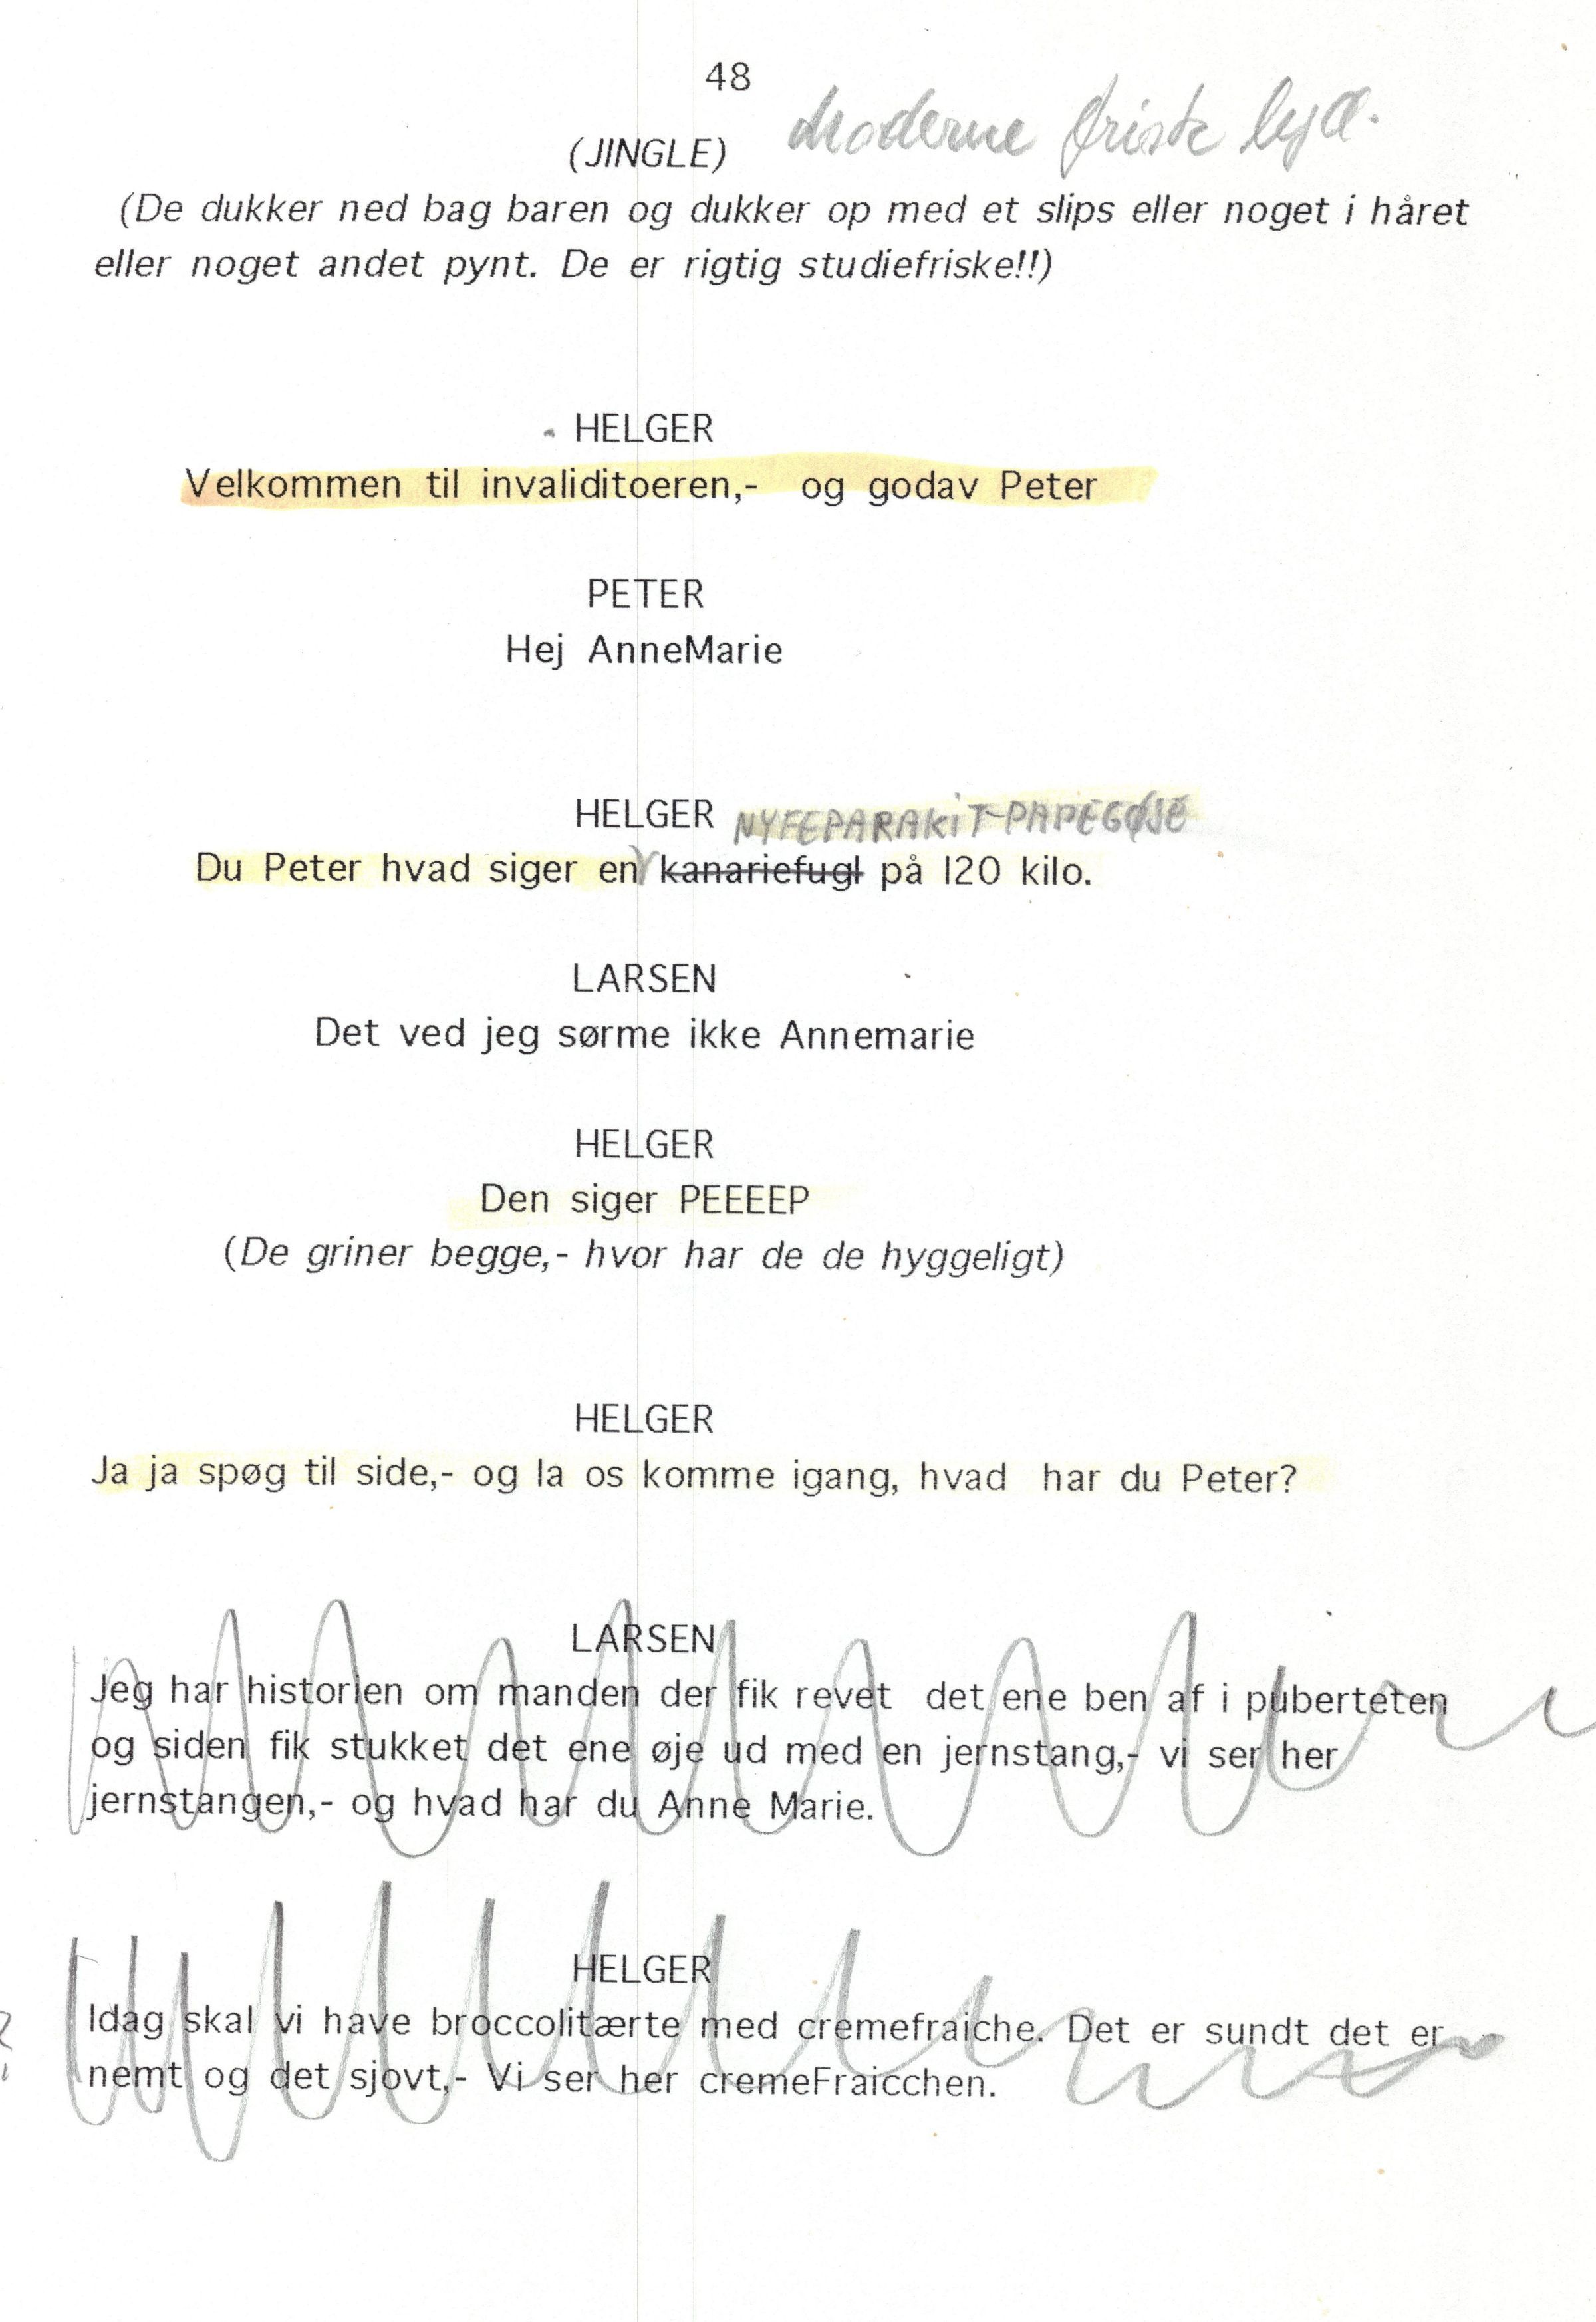 48
Moderne friske
(JINGLE)
(De dukker ned bag baren og dukker op med et slips eller noget i håret
eller noget andet pynt. De er rigtig studiefriske!!)
HELGER
Velkommen til invaliditoeren,- og godav Peter
PETER
Hej AnneMarie
HELGER NYFEPARAKIT-PAPEGØJE
Du Peter hvad siger en kanariefugl på 120 kilo.
LARSEN
Det ved jeg sørme ikke Annemarie
HELGER
Den siger PEEEEP
(De griner begge,- hvor har de de hyggeligt)
HELGER
Ja ja spøg til side,- og la os komme igang, hvad har du Peter?
LARSEN
Jeg har historien om manden der fik revet det ene ben af i puberteten
og siden fik stukket det ene øje ud med en jernstang,- vi ser her
jernstangen,- og hvad har du Anne Marie.
HELGER
Idag skal vi have broccolitærte med cremefraiche. Det er sundt det er
nemt og det sjovt,- Vi ser her cremeFraicchen.